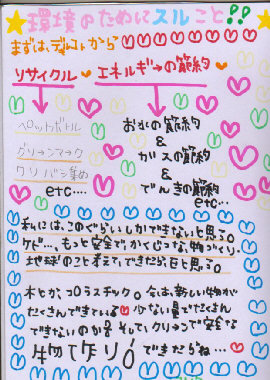 ★環境のためにスルこと!!★
まずは、ディレクトから
リサイクル♥エネルギーの節約
ペットボトル
グリーンマーク
クリパン集め
etc....
お水の節約
&
ガスの節約
&
でんきの節約
etc...
私には、このぐらいしかできないと思う。
ケド…、もっと安全で、かくじつな物づくり、
地球のこと考えてできたらナと思る。
木とか、プラスチック。今は、新しい物が
たくさんできている♥少ない量でたくさん
できないのか?そして、クリーンで安全な
生物で作り
できたらね…♥